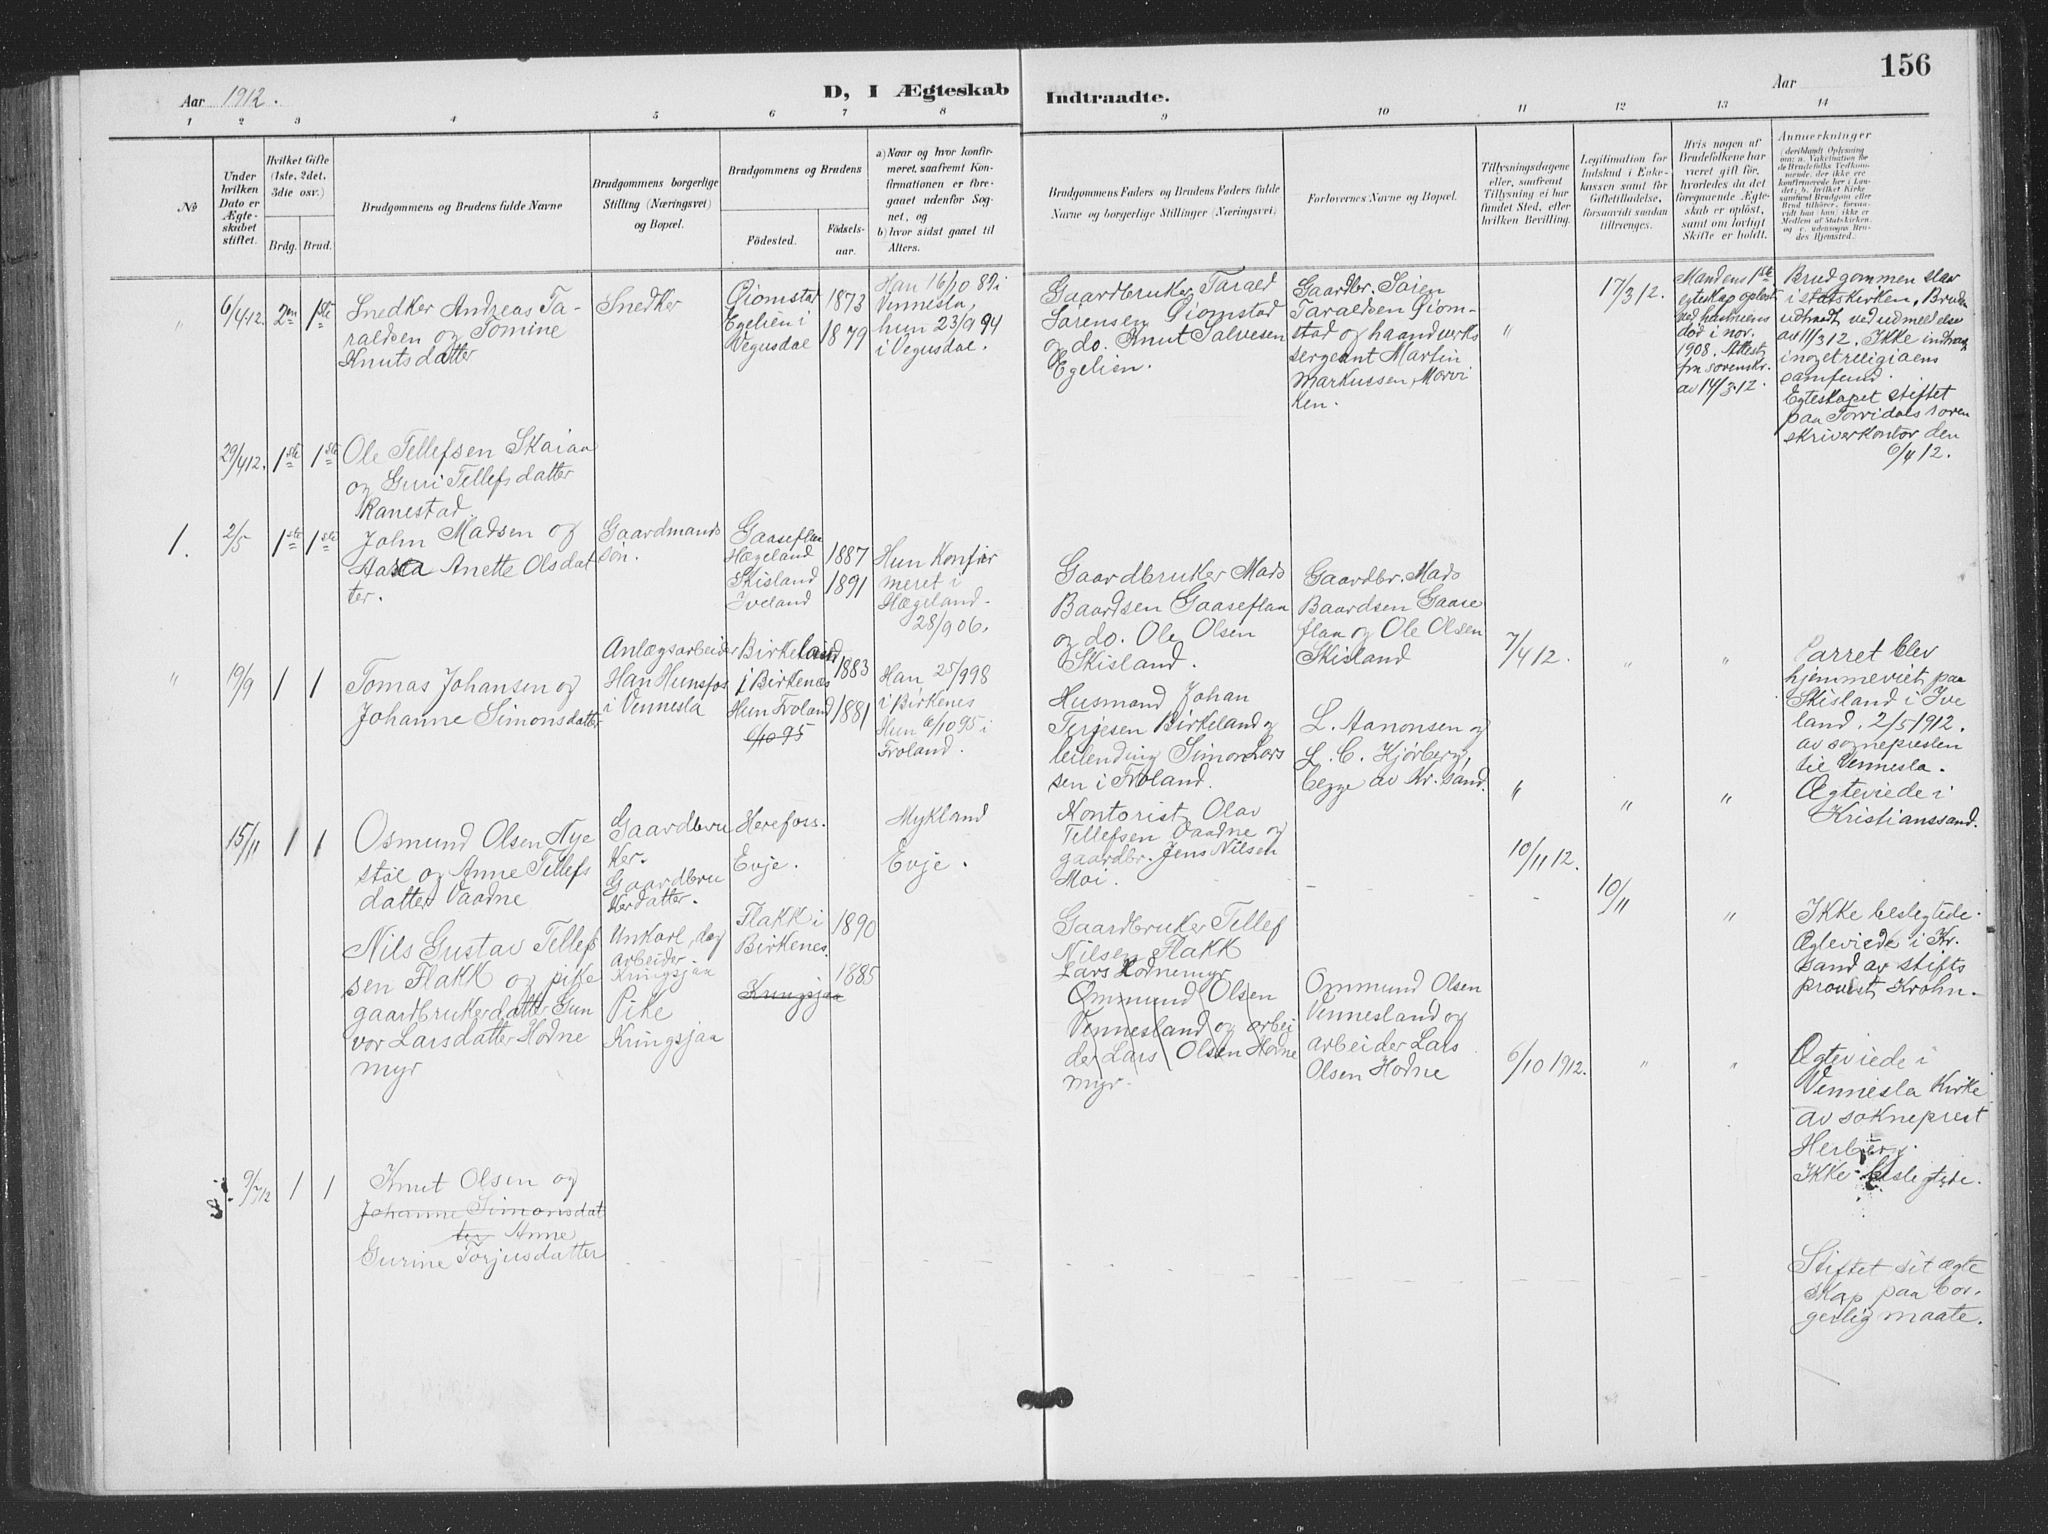 156
Aar 1912.
D, I Ægteskab Indtraadte.
Aar
1 2 3 4 5 6 7 8 9 10 11 12 13 14
No
Under
hvilken
Dato er
Ægte-
skabet
stiftet.
Hvilket Gifte
(1ste, 2det,
3die osv.)
Brdg. Brud.
Brudgommens og Brudens fulde Navne
Brudgommens borgerlige
Stilling (Næringsvei)
og Bopæl.
Brudgommens og Brudens
Fødested.
Fødsels-
aar.
a) Naar og hvor konfir-
meret, saafremt Kon-
firmationen er fore-
gaaet udenfor Sog-
net, og
b) hvor sidst gaaet til
Alters.
Brudgommens Faders og Brudens Faders fulde
Navne og borgerlige Stillinger (Næringsvei)
Forlovernes Navne og Bopæl.
Tillysningsdagene
eller, saafremt
Tillysning ei har
fundet Sted, efter
hvilken Bevilling.
Legitimation for
Indskud i Enke-
kassen samt for
Giftetilladelse,
forsaavidt saadan
tiltrænges.
Hvis nogen af
Brudefolkene har
været gift før,
hvorledes da det
foregaaende Ægte-
skab er opløst,
samt om lovligt
Skifte er holdt.
Anmerkninger
(deriblandt Oplysning
om: a. Vakcination for
de Brudefolks Vedkom-
mende, der ikke ere
konfirmerede her i Lan-
det; b. hvilket Kirke
samfund Brudgom eller
Brud tilhører, forsaa-
vidt han (hun) ikke er
Medlem af Statskirken.
og c. udensogns Bru-
des Hjemsted.
"
6/4 12.
2en
1ste
Snedker Andreas Ta-
raldsen og Tomine
Knutsdatter
Snedker
Øiomstad
Egelien i
Vegusdal
1873
1879
Han 16/10 89 i
Vennesla,
hun 23/9 94
i Vegusdal.
Gaardbruker Tarald
Sørensen Øiomstad
og do. Knut Salvesen
Egelien.
Gaardbr. Søren
Taraldsen Øiom-
stad og haandverks
sergeant Martin
Markussen, Morvi
ken.
"
17/3 12.
Mandens 1ste
egteskap opløst
ved hustruens
død i nov.
1908. Attest
fra sorenskr.
av 14/3 12.
Brudgommen staar
i statskirken, Bruden
udtraadt ved udmeldelse
av 11/3 12. Ikke indtraadt
i noget religiøens
samfund.
Egteskapet stiftet
paa Torridals soren
skriverkontor den
6/4 12.
29/4 12.
1ste
1ste
Ole Tellefsen Skaiaa
og Guri Tellefsdatter
Ranestad.
1.
2/5
1ste
1ste
John Madsen og
Aasta Anette Olsdat
ter.
Gaardmands
søn.
Gaaseflaa
Hægeland
Skisland
Iveland
1887
1891
Hun Konfir
meret i
Hægeland
28/9 06.
Gaardbruker Mads
Baardsen Gaaseflaa
og do. Ole Olsen
Skisland.
Gaardbr. Mads
Baardsen Gaase
flaa og Ole Olsen
Skisland
7/4 12.
"
"
Parret blev
hjemmeviet paa
Skisland i Ive
land. 2/5 1912.
av sognepresten
til Vennesla.
"
19/9
1
1
Tomas Johansen og
Johanne Simonsdatter
Anlægsarbeider
Han Hunsfos
i Vennesla
Birkeland
i Birkenes
Hun Froland
6/10 95
1883
1881
Han 25/9 98
i Birkenes
Hun 6/10 95 i
Froland.
Husmand Johan
Terjesen Birkeland og
leilending Simon Lars
sen i Froland.
L. Aanonsen og
L. C. Hjørberg,
begge av Kr.sand.
"
"
"
Ægteviede i
Kristianssand.
15/11
1
1
Osmund Olsen Nye
støl og Anne Tellefs
datter Vaadne
Gaardbru
ker.
Gaardbru
kerdatter.
Herefoss.
Evje.
Mykland
Evje.
Kontorist Olav
Tellefsen Vaadne og
gaardbr. Jens Nilsen
Moi.
10/11 12.
10/11
"
Ikke beslegtede.
Ægteviede i Kr.
sand av stifts
provst Krohn.
Nils Gustav Tellef
sen Flakk og pike
gaardbrukerdatter Gun
vor Larsdatter Hodne
myr
Unkarl, dag
arbeider
Kringsjaa
Pike
Kringsjaa
Flakk i
Birkenes.
Kringsjaa
1890
1885
Gaardbruker Tellef
Nilsen Flakk
Lars Hodnemyr
Ommund Olsen
Vennesland og arbei
der Lars Olsen Hodne
myr.
Ommund Olsen
Vennesland og
arbeider Lars
Olsen Hodne
6/10 1912.
"
"
Ægteviede i
Vennesla Kirke
av sokneprest
Herberg.
Ikke beslegtede.
9/7 12
1
1
Knut Olsen og
Johanne Simonsdat
ter Anne
Gurine Torjusdatter
Stiftet sit ægte
skap paa bor-
gerlig maate.